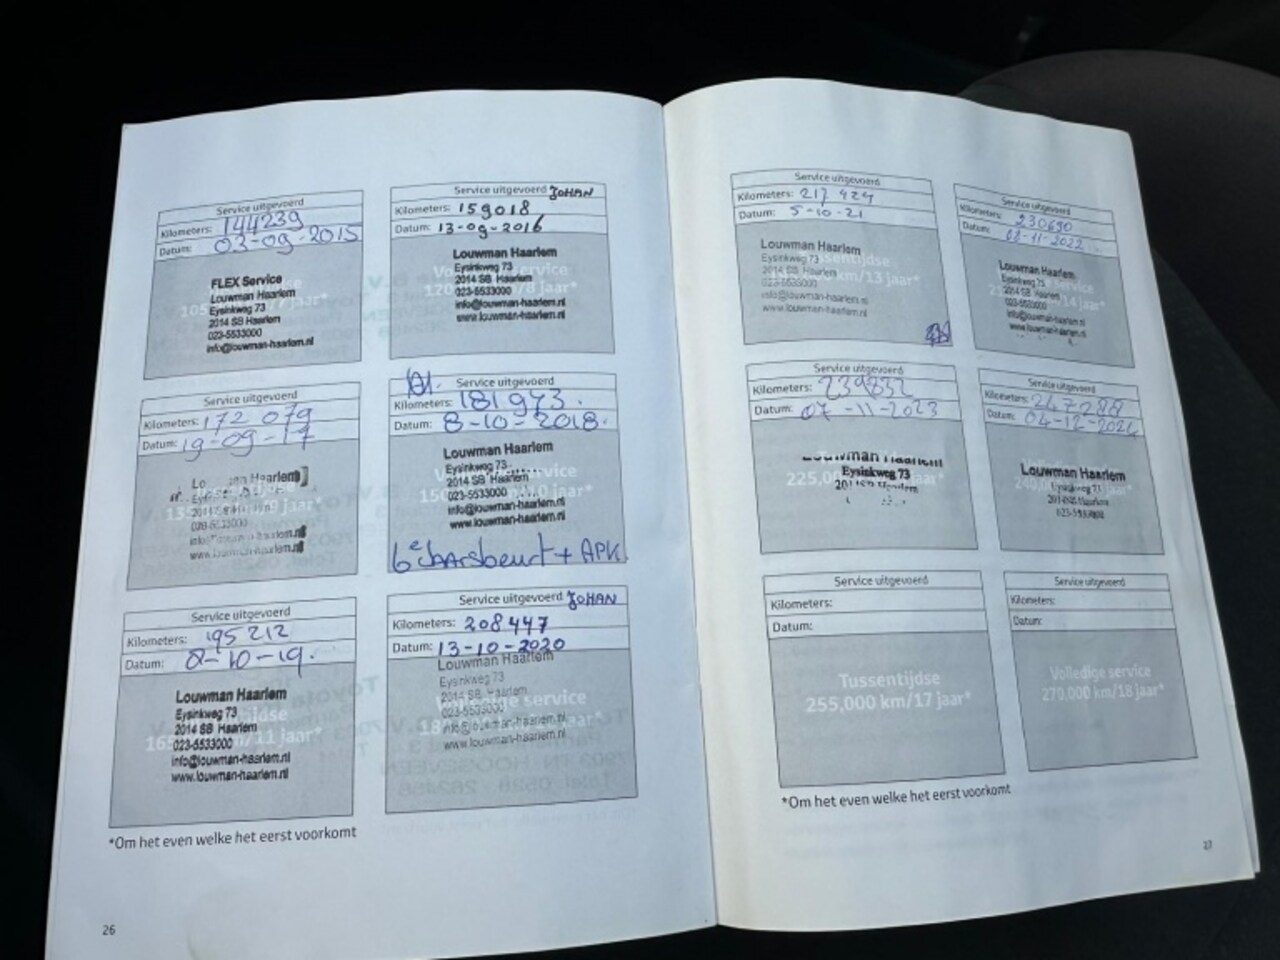 Service uitgevoerd
Kilometers: 144239
Datum: 03-09-2015
FLEX Service
Louwman Haarlem
Eysinkweg 73
2014 SB Haarlem
023-5533000
info@louwman-haarlem.nl
Service uitgevoerd JOHAN
Kilometers: 159018
Datum: 13-09-2016
Louwman Haarlem
Eysinkweg 73
2014 SB Haarlem
023-5533000
info@louwman-haarlem.nl
www.louwman-haarlem.nl
Service uitgevoerd
Kilometers: 172 079
Datum: 19-09-17
Haarlem
info@
www.louwman-haarlem.nl
Service uitgevoerd
Kilometers: 181 973.
Datum: 8-10-2018.
Louwman Haarlem
Eysinkweg 73
2014 SB Haarlem
023-5533000
info@louwman-haarlem.nl
www.louwman-haarlem.nl
6e Jaarsbeurt + APK
Service uitgevoerd
Kilometers: 195 212
Datum: 8-10-19.
Louwman Haarlem
Eysinkweg 73
2014 SB Haarlem
023-5533000
info@louwman-haarlem.nl
www.louwman-haarlem.nl
Service uitgevoerd JOHAN
Kilometers: 208447
Datum: 13-10-2020
Louwman Haarlem
Eysinkweg 73
2014 SB Haarlem
023-5533000
info@louwman-haarlem.nl
www.louwman-haarlem.nl
*Om het even welke het eerst voorkomt
26
Service uitgevoerd
Kilometers: 217 424
Datum: 5-10-21
Louwman Haarlem
Eysinkweg 73
2014 SB Haarlem
023-5533000
info@louwman-haarlem.nl
www.louwman-haarlem.nl
Service uitgevoerd
Kilometers: 230690
Datum: 08-11-2022
Louwman Haarlem
Eysinkweg 73
2014 SB Haarlem
023-5533000
info@louwman-haarlem.nl
www.louwman-haarlem.nl
Service uitgevoerd
Kilometers: 239832
Datum: 07-11-2023
Louwman Haarlem
Eysinkweg 73
Service uitgevoerd
Kilometers: 247288
Datum: 04-12-2024
Louwman Haarlem
Eysinkweg 73
2014 SB Haarlem
023-5533000
Service uitgevoerd
Kilometers:
Datum:
Tussentijdse
255,000 km/17 jaar*
Service uitgevoerd
Kilometers:
Datum:
Volledige service
270.000 km/18 jaar*
*Om het even welke het eerst voorkomt
27